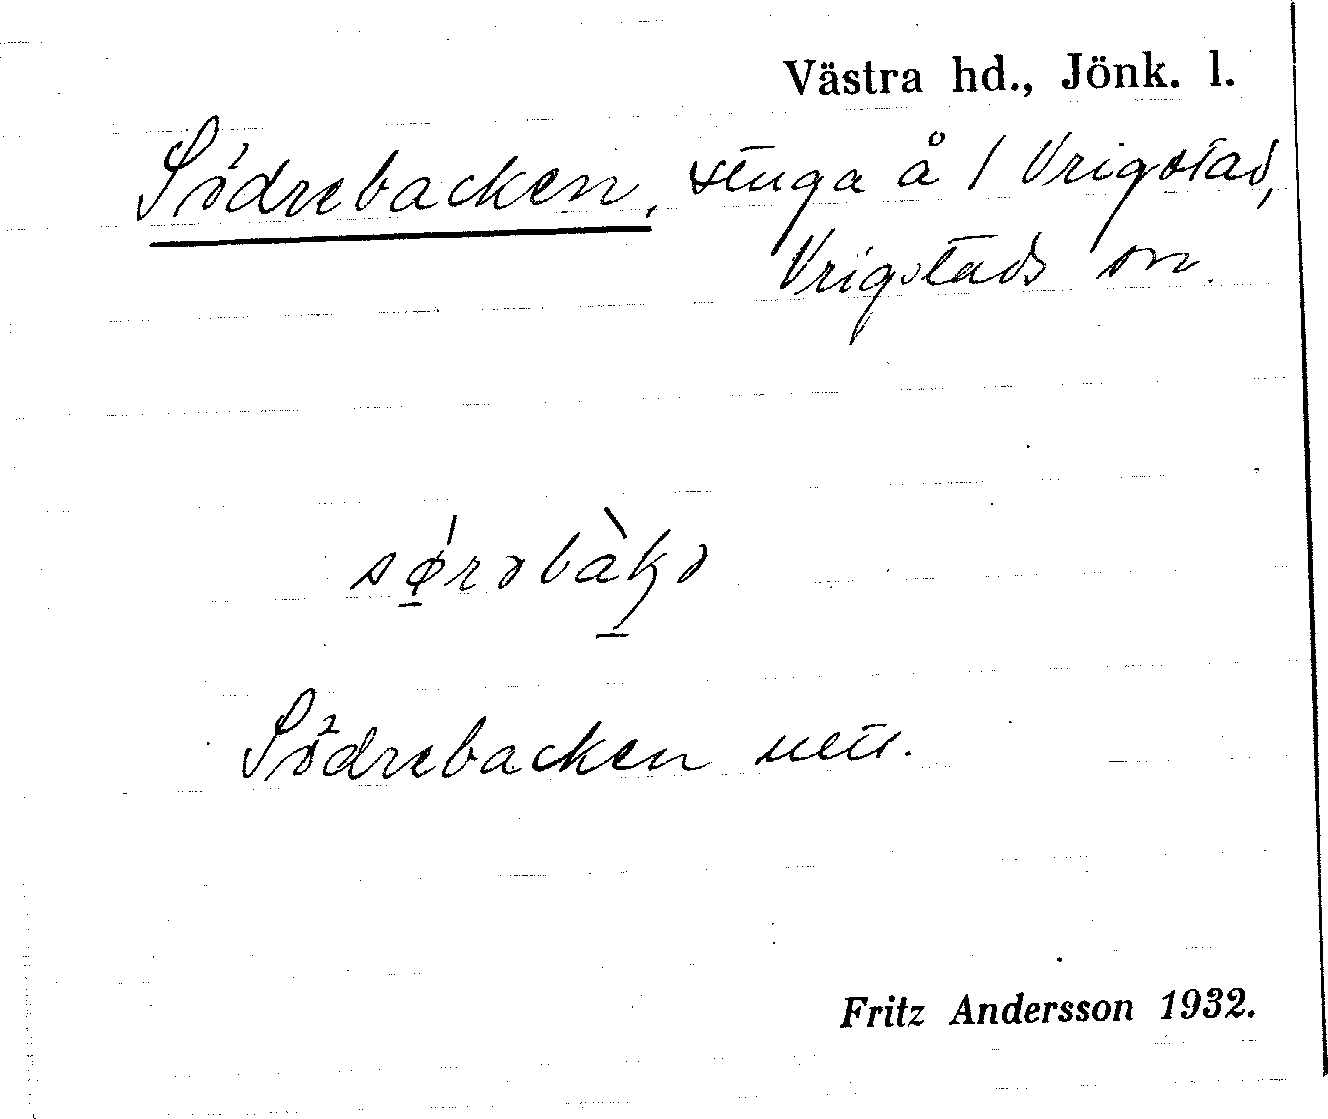 Västra hd., Jönk. l.
Södrebacken, stuga å 1 Vrigstad,
Vrigstads sn.
sǿrəbàkə
Södrebacken
Fritz Andersson 1932.